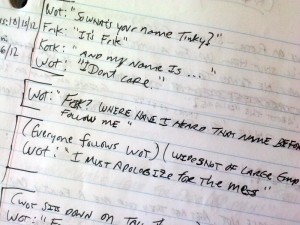 10/15/12
Wot: "So whats your name Tinky?"
Frik: "It's Frik"
Kork: "and my name is....."
Wot: "I Dont care."
6/12
Wot: "Frik? WHERE HAVE I HEARD THAT NAME BEFOR
FOLLOW ME"
(Everyone Follows Wot) OF LARGE
Wot: "I MUST APOLOGIZE FOR THE MESS"
(Wot SITS DOWN ON
Wot: